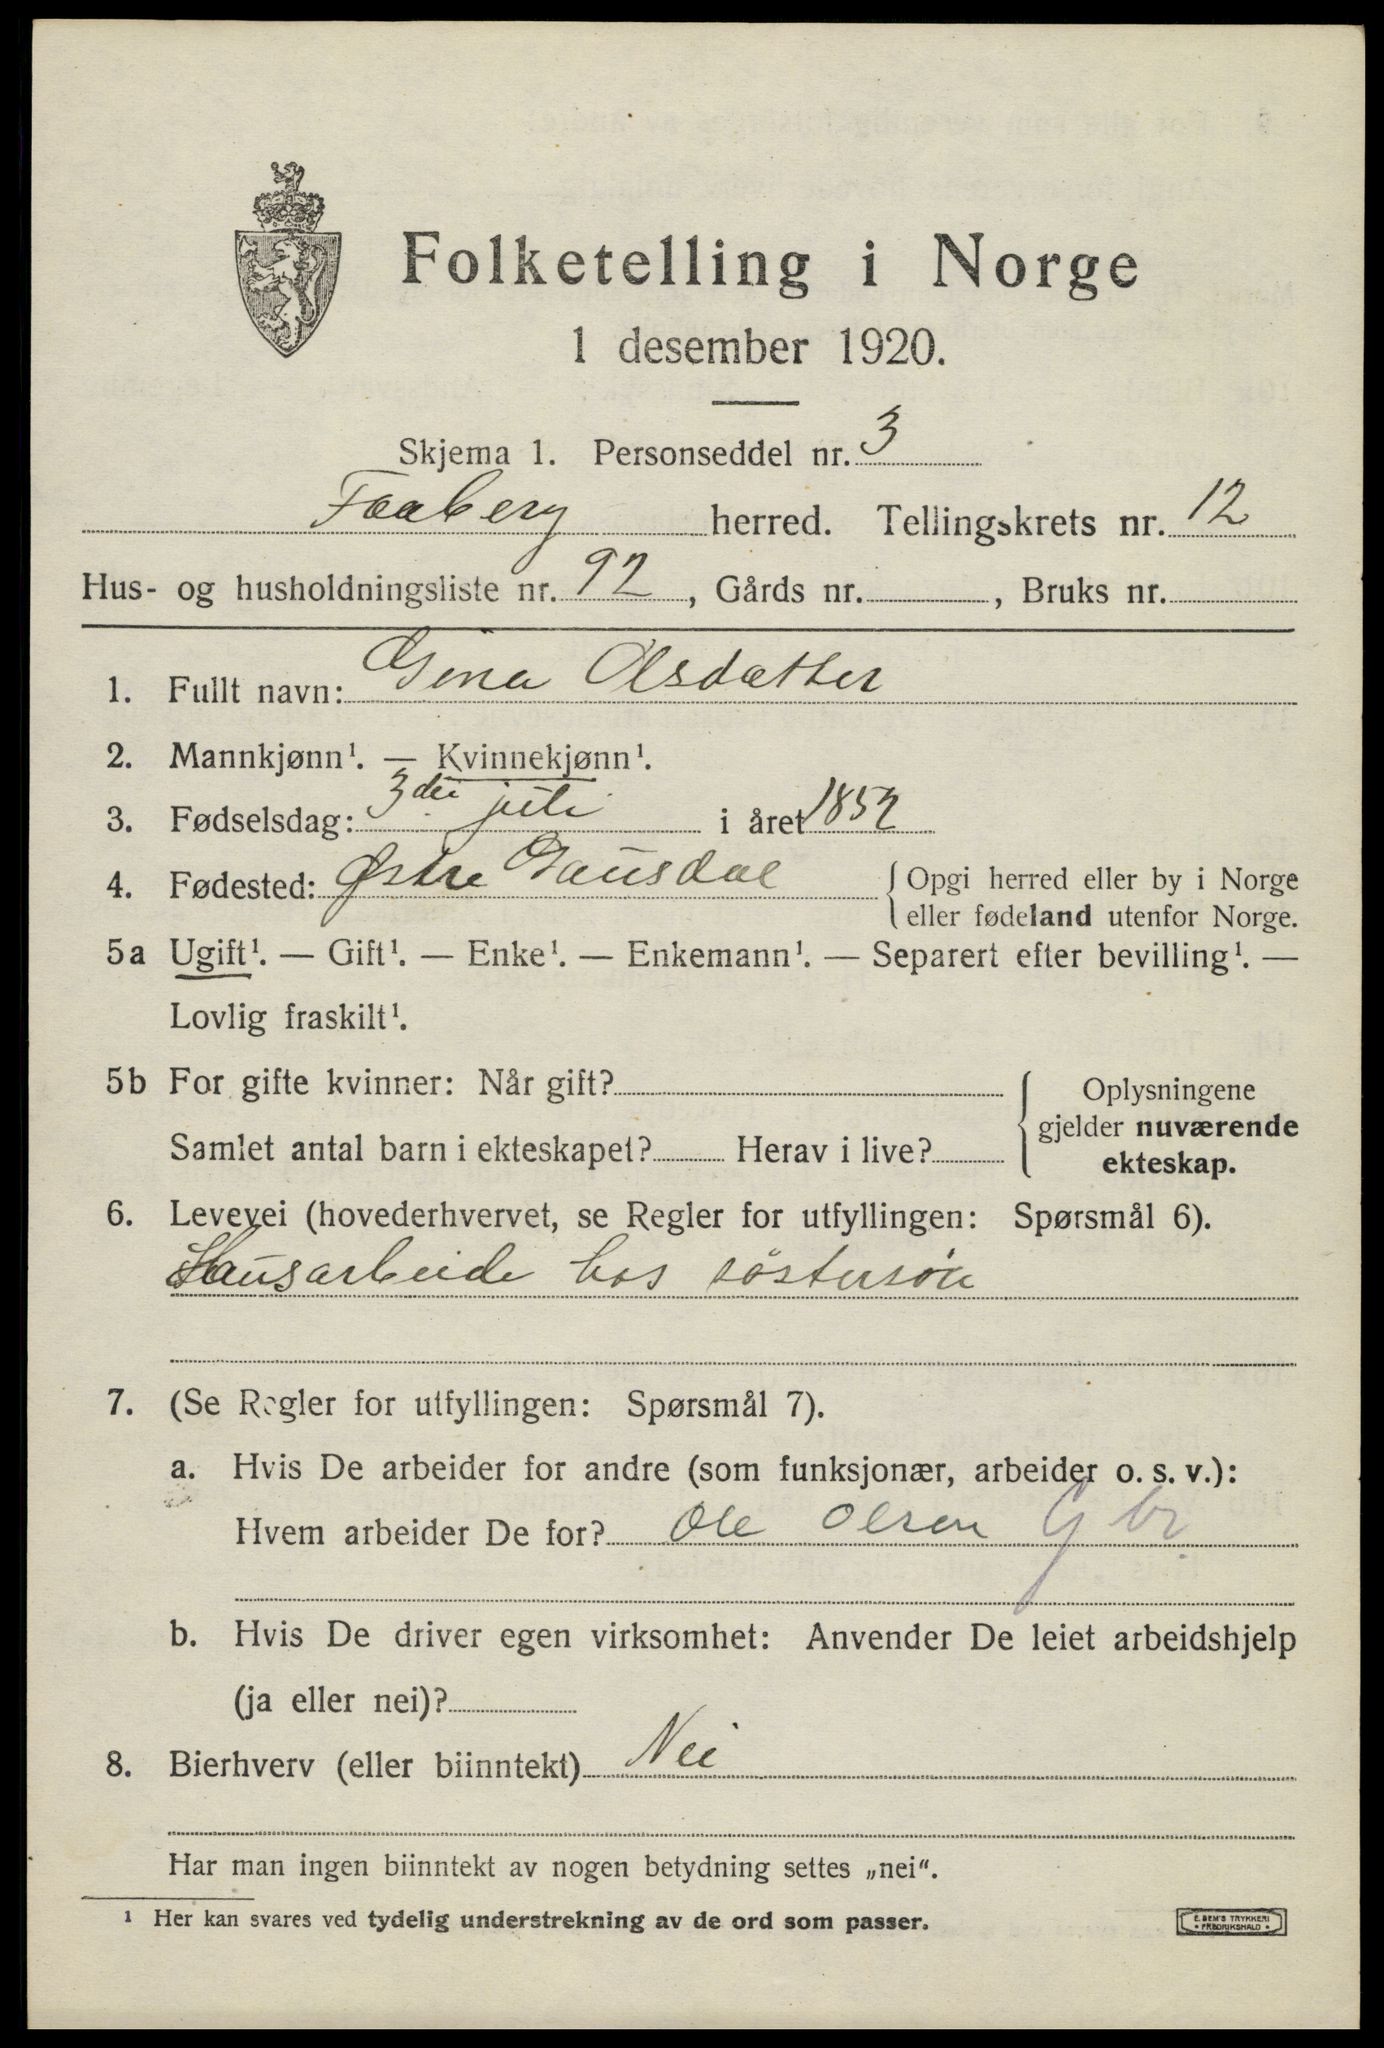 Folketelling i Norge
1 desember 1920.
Skjema 1. Personseddel nr. 3
Faaberg herred. Tellingskrets nr. 12
Hus- og husholdningsliste nr. 92, Gårds nr. , Bruks nr.
1. Fullt navn: Gina Olsdatter
2. Mannkjønn¹. — Kvinnekjønn¹.
3. Fødselsdag: 3die juli i året 1852
4. Fødested: Østre Gausdal
{ Opgi herred eller by i Norge
eller fødeland utenfor Norge.
5a Ugift¹. — Gift¹. — Enke¹. — Enkemann¹. — Separert efter bevilling¹. —
Lovlig fraskilt¹.
5b For gifte kvinner: Når gift?
Samlet antal barn i ekteskapet? Herav i live?
{ Oplysningene
gjelder nuværende
ekteskap.
6. Levevei (hovederhvervet, se Regler for utfyllingen: Spørsmål 6).
Husarbeide hos søstersøn
7. (Se Regler for utfyllingen: Spørsmål 7).
a. Hvis De arbeider for andre (som funksjonær, arbeider o. s. v.):
Hvem arbeider De for? Ole Olsen Gbr.
b. Hvis De driver egen virksomhet: Anvender De leiet arbeidshjelp
(ja eller nei)?
8. Bierhverv (eller biinntekt) Nei
Har man ingen biinntekt av nogen betydning settes „nei".
¹ Her kan svares ved tydelig understrekning av de ord som passer.
E. SEM'S TRYKKERI
• FREDRIKSHALD •